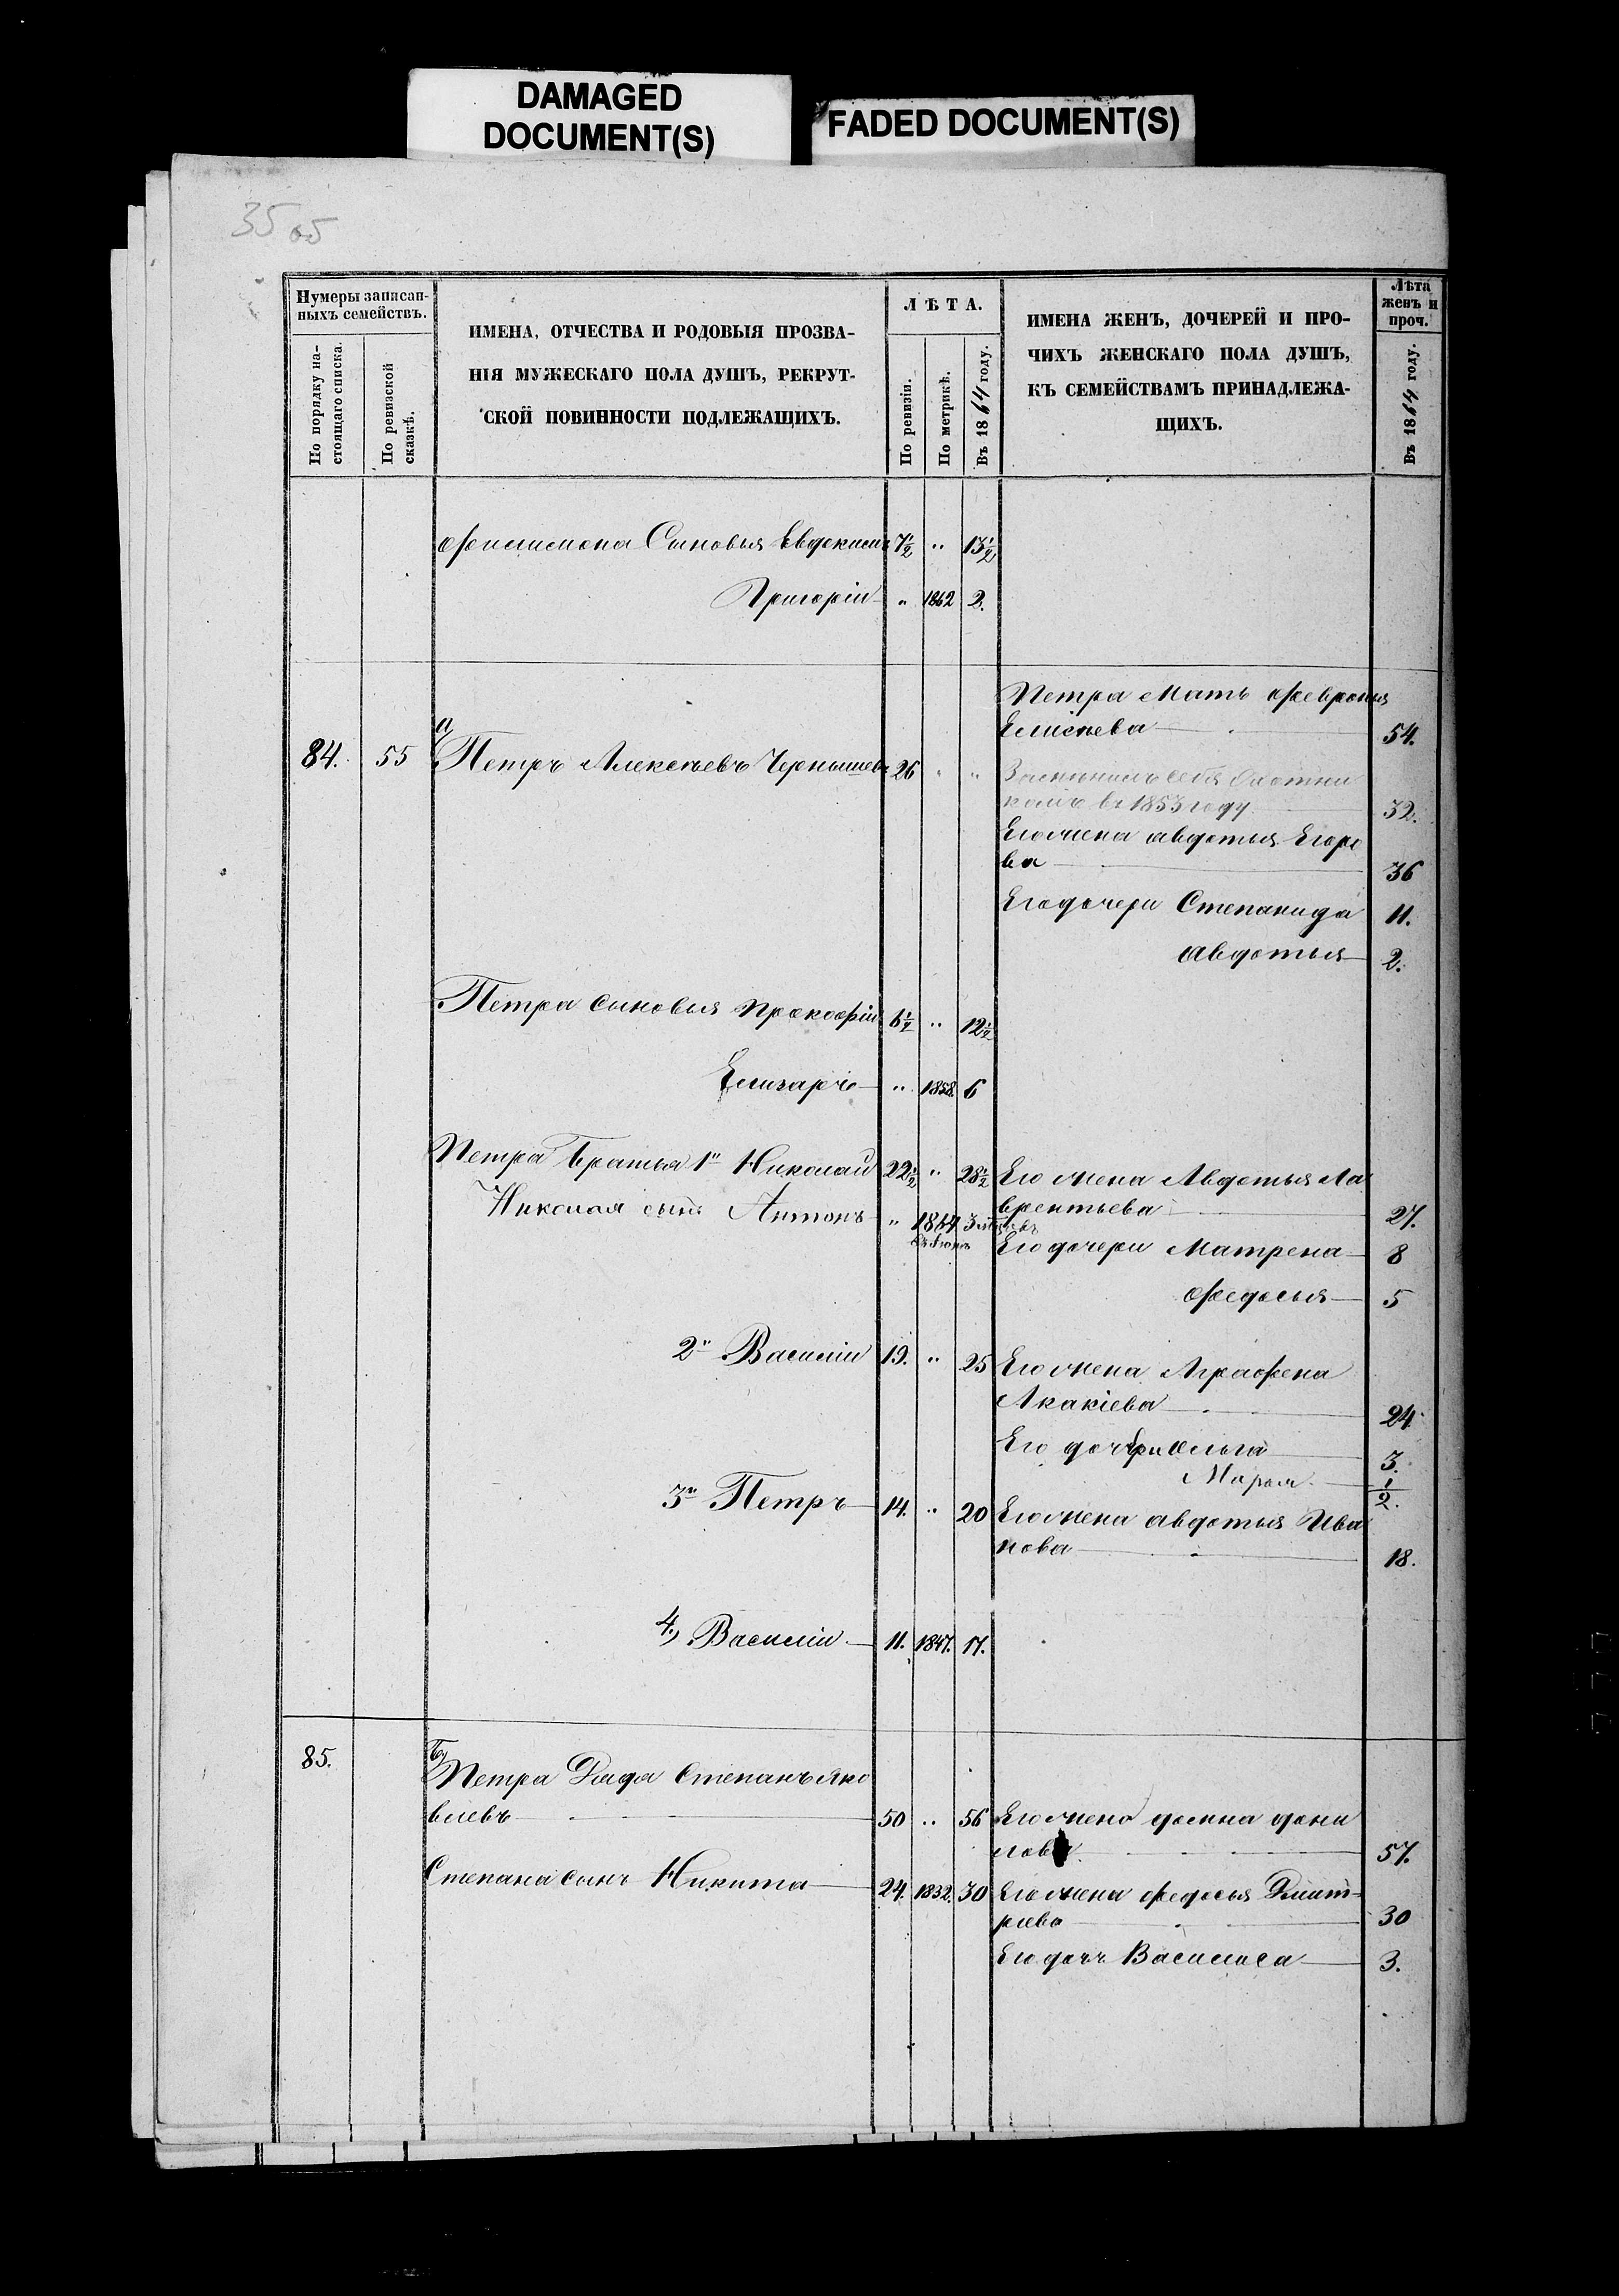 DAMAGED
DOCUMENT(S)
FADED DOCUMENT(S)
35 об
Нумеры записан-
ныхъ семействъ.
По порядку на-
стоящаго списка.
По ревизской
сказкѣ.
ИМЕНА, ОТЧЕСТВА И РОДОВЫЯ ПРОЗВА-
НІЯ МУЖЕСКАГО ПОЛА ДУШЪ, РЕКРУТ-
СКОЙ ПОВИННОСТИ ПОДЛЕЖАЩИХЪ.
ЛѢТА.
По ревизіи.
По метрикѣ.
Въ 1864 году.
ИМЕНА ЖЕНЪ, ДОЧЕРЕЙ И ПРО-
ЧИХЪ ЖЕНСКАГО ПОЛА ДУШЪ,
КЪ СЕМЕЙСТВАМЪ ПРИНАДЛЕЖА-
ЩИХЪ.
Лѣта
женъ и
проч.
Въ 1864 году.
Филимона Сыновья Евдокимъ 7½ „ 13½
Григорій „ 1862 2.
Петра Мать Февронья
Елисѣева 54.
84. 55 а) Петръ Алексѣевъ Чернышевъ 26 „ „
Замѣнилъ себя Охотни
комъ въ 1853 году 32.
Его жена авдотья Егоро
ва 36
Его дочери Степанида 11.
авдотья 2.
Петра сыновья Прокофій 6½ „ 12½
Елизаръ „ 1858. 6
Петра Братья 1й Николай 22½ „ 28½ Его жена Авдотья Ла
врентьева 27.
Николая сынъ Антонъ „ 1864 3
Его дочери Матрена 8
Федосья 5
2й Василій 19. „ 25 Его жена Аграфена
Акакіева 24
Его дочери Ольга 3.
Марья ½.
3й Петръ 14. „ 20 Его жена авдотья Ива
нова 18.
4) Василій 11. 1847. 17.
85. б) Петра Дядя Степанъ Яко
влевъ 50 „ 56 Его жена домна дани
лова 57.
Степана сынъ Никита 24. 1832. 30 Его жена федосья Дмит-
ріева 30
Его дочь Василиса 3.